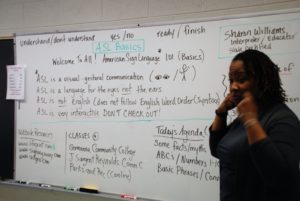 understand/don't understand yes/no ready/finish
ASL Basics
Welcome To All! American Sign Language 101 (Basics)
ASL is a visual-gestural communication
ASL is a language for the eyes not the ears
ASL is not English (does not follow English Word Order (Syntax))
ASL is very interactive DON'T CHECK OUT!
Sharon Williams,
Interpreter/Educator
State Certified
Website Resources
CLASSES
Germanna Community College
J Sargeant Reynolds Comm C
Parks and Rec (Caroline)
Today's Agenda
Some Facts/myths
ABC's/Numbers
Basic Phrases/